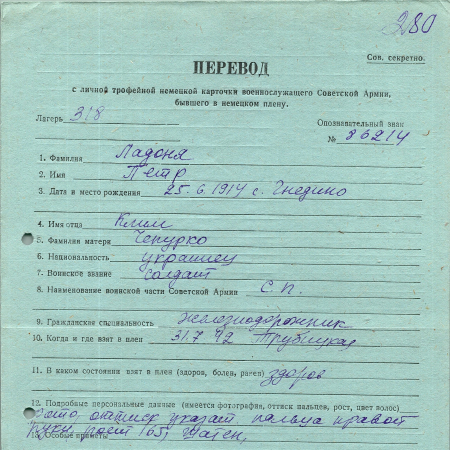 280
Сов. секретно.
ПЕРЕВОД
с личной трофейной немецкой карточки военнослужащего Советской Армии,
бывшего в немецком плену.
Лагерь 318
Опознавательный знак
№ 86214
1. Фамилия Ладоня
2. Имя Петр
3. Дата и место рождения 25.6.1914 с. Гнедино
4. Имя отца Клим
5. Фамилия матери Чепурко
6. Национальность украинец
7. Воинское звание солдат
8. Наименование воинской части Советской Армии С.п.
9. Гражданская специальность железнодорожник
10. Когда и где взят в плен 31.7.42 Трубицкая
11. В каком состоянии взят в плен (здоров, болен, ранен) здоров
12. Подробные персональные данные (имеется фотография, оттиск пальцев, рост, цвет волос)
фото, оттиск указат. пальца правой
руки, рост 165, шатен,
13. Особые приметы